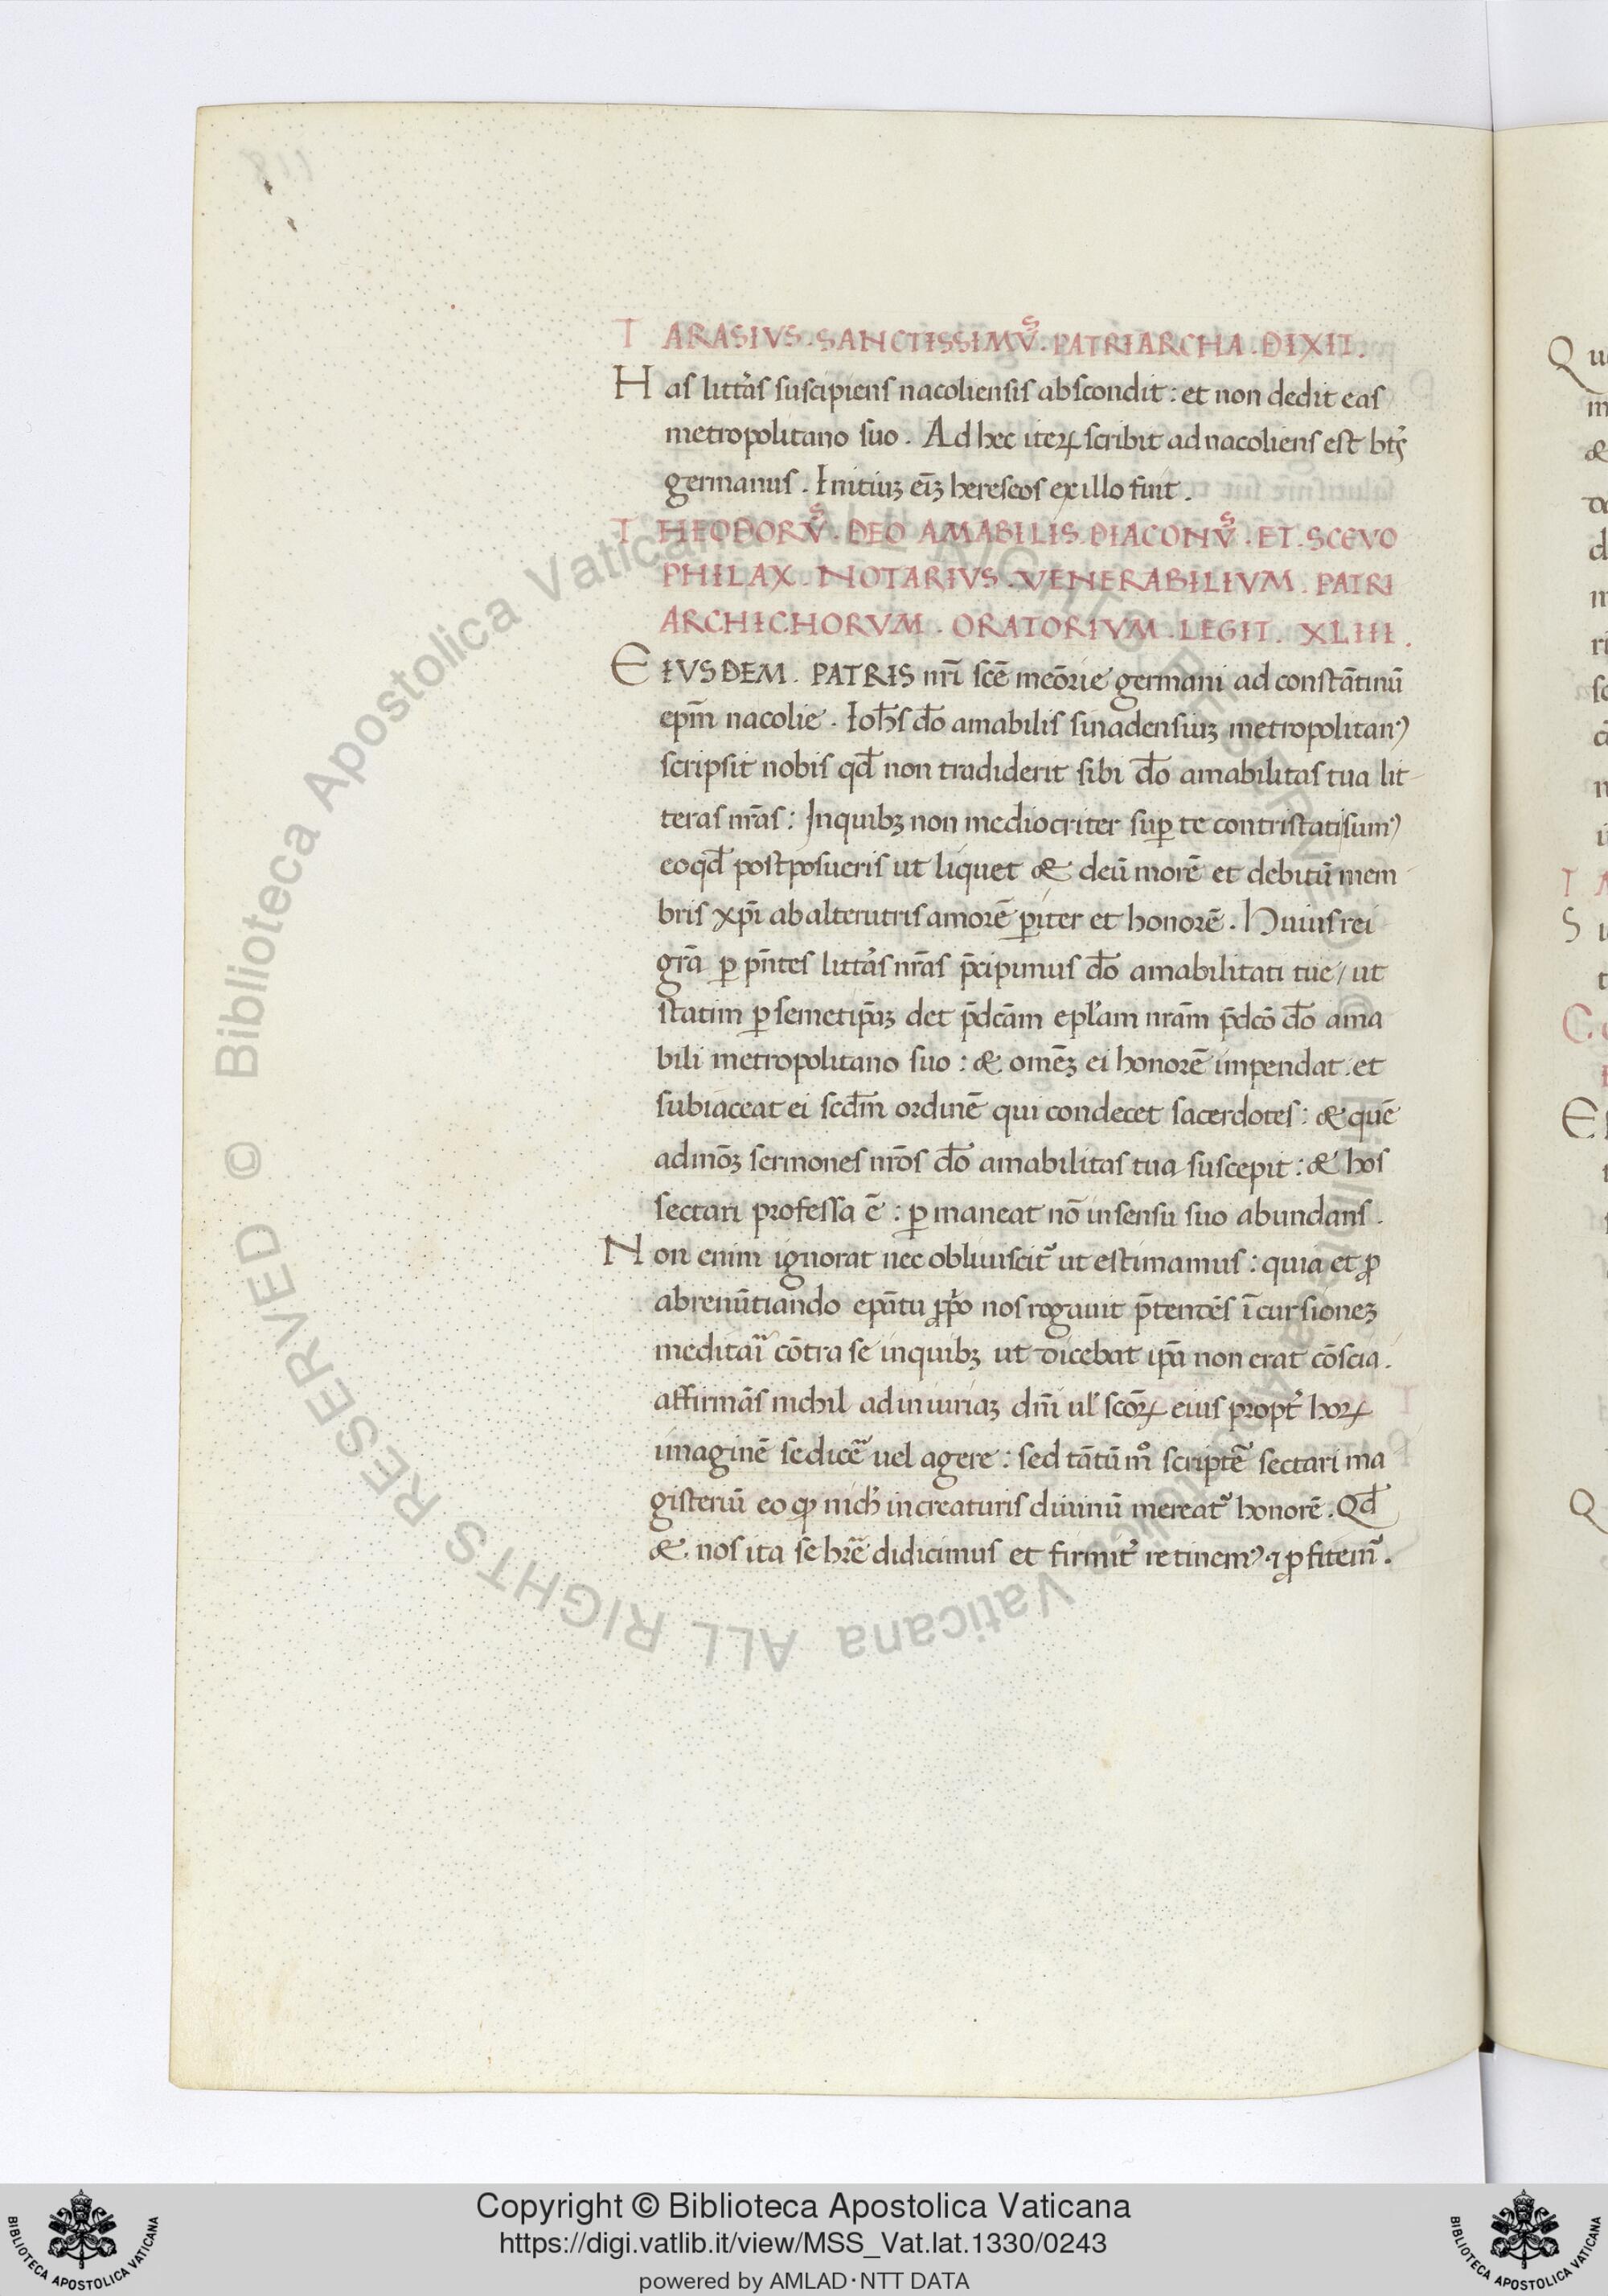 TARASIVS . SANCTISSIMVˢ . PATRIARCHA . DIXIT .
Has litt̓as suscipiens nacoliensis abscondit : et non dedit eas
metropolitano suo . Ad hec iteꝝ scribit ad nacoliens est bt̓s
germanus . Initiuꝫ eiꝫ hereseos ex illo fuit .
THEODORVˢ . DEO AMABILIS . DIACONVˢ . ET . SCEVO
PHILAX . NOTARIVS . VENERABILIVM . PATRI
ARCHICHORVM . ORATORIVM . LEGIT . XLIII .
EIVSDEM . PATRIS nr̄i scē meōrie germani ad constātinū
ep̄m nacolie . Ioh̄s d̄o amabilis sinadensiuꝫ metropolitanꝰ
scripsit nobis qd̄ non tradiderit sibi d̄o amabilitas tua lit
teras nr̄as : Inquibꝫ non mediocriter suꝑ te contristati sumꝰ
eoqd̄ postposueris ut liquet & deū morē et debitū mem
bris xp̄i ab alterutris amorē ꝑiter et honorē . Huius rei
gr̄a ꝑ pn̄tes litt̓as nr̄as p̄cipimus d̄o amabilitati tue / ut
statim ꝑ semetip̄aꝫ det p̄dcām epl̓am nrām p̄dcō d̄o ama
bili metropolitano suo : & omēꝫ ei honorē impendat . et
subiaceat ei scd̄m ordinē qui condecet sacerdotes : & quē
admōꝫ sermones nr̄os d̄o amabilitas tua suscepit : & hos
sectari professa ē : ꝑmaneat nō in sensu suo abundans .
Non enim ignorat nec obliuiscit᷑ ut estimamus : quia et ꝓ
abrenūtiando epātu ꝓp̓o nos rogauit p̄tendēs īcursioneꝫ
meditai᷑ cōtra se inquibꝫ ut dicebat ip̄a non erat cōscia .
affirmās nichil ad iniuriaꝫ dn̄i ul̓ scōꝝ eius propt̓ hoꝝ
imaginē se dicē᷑ uel agere : sed tātū mͦ scriptē᷑ sectari ma
gisteriū eo ꝙ nich̓ in creaturis diuinū mereat᷑ honorē . Qd̄
& nos ita se hr̄e didicimus et firmit̓ retinemꝰ . ⁊ ꝓfitem᷑ .
Copyright © Biblioteca Apostolica Vaticana
https://digi.vatlib.it/view/MSS_Vat.lat.1330/0243
powered by AMLAD·NTT DATA
BIBLIOTECA APOSTOLICA VATICANA
BIBLIOTECA APOSTOLICA VATICANA
© Biblioteca Apostolica Vaticana ALL RIGHTS RESERVED
© Biblioteca Apostolica Vaticana ALL RIGHTS RESERVED